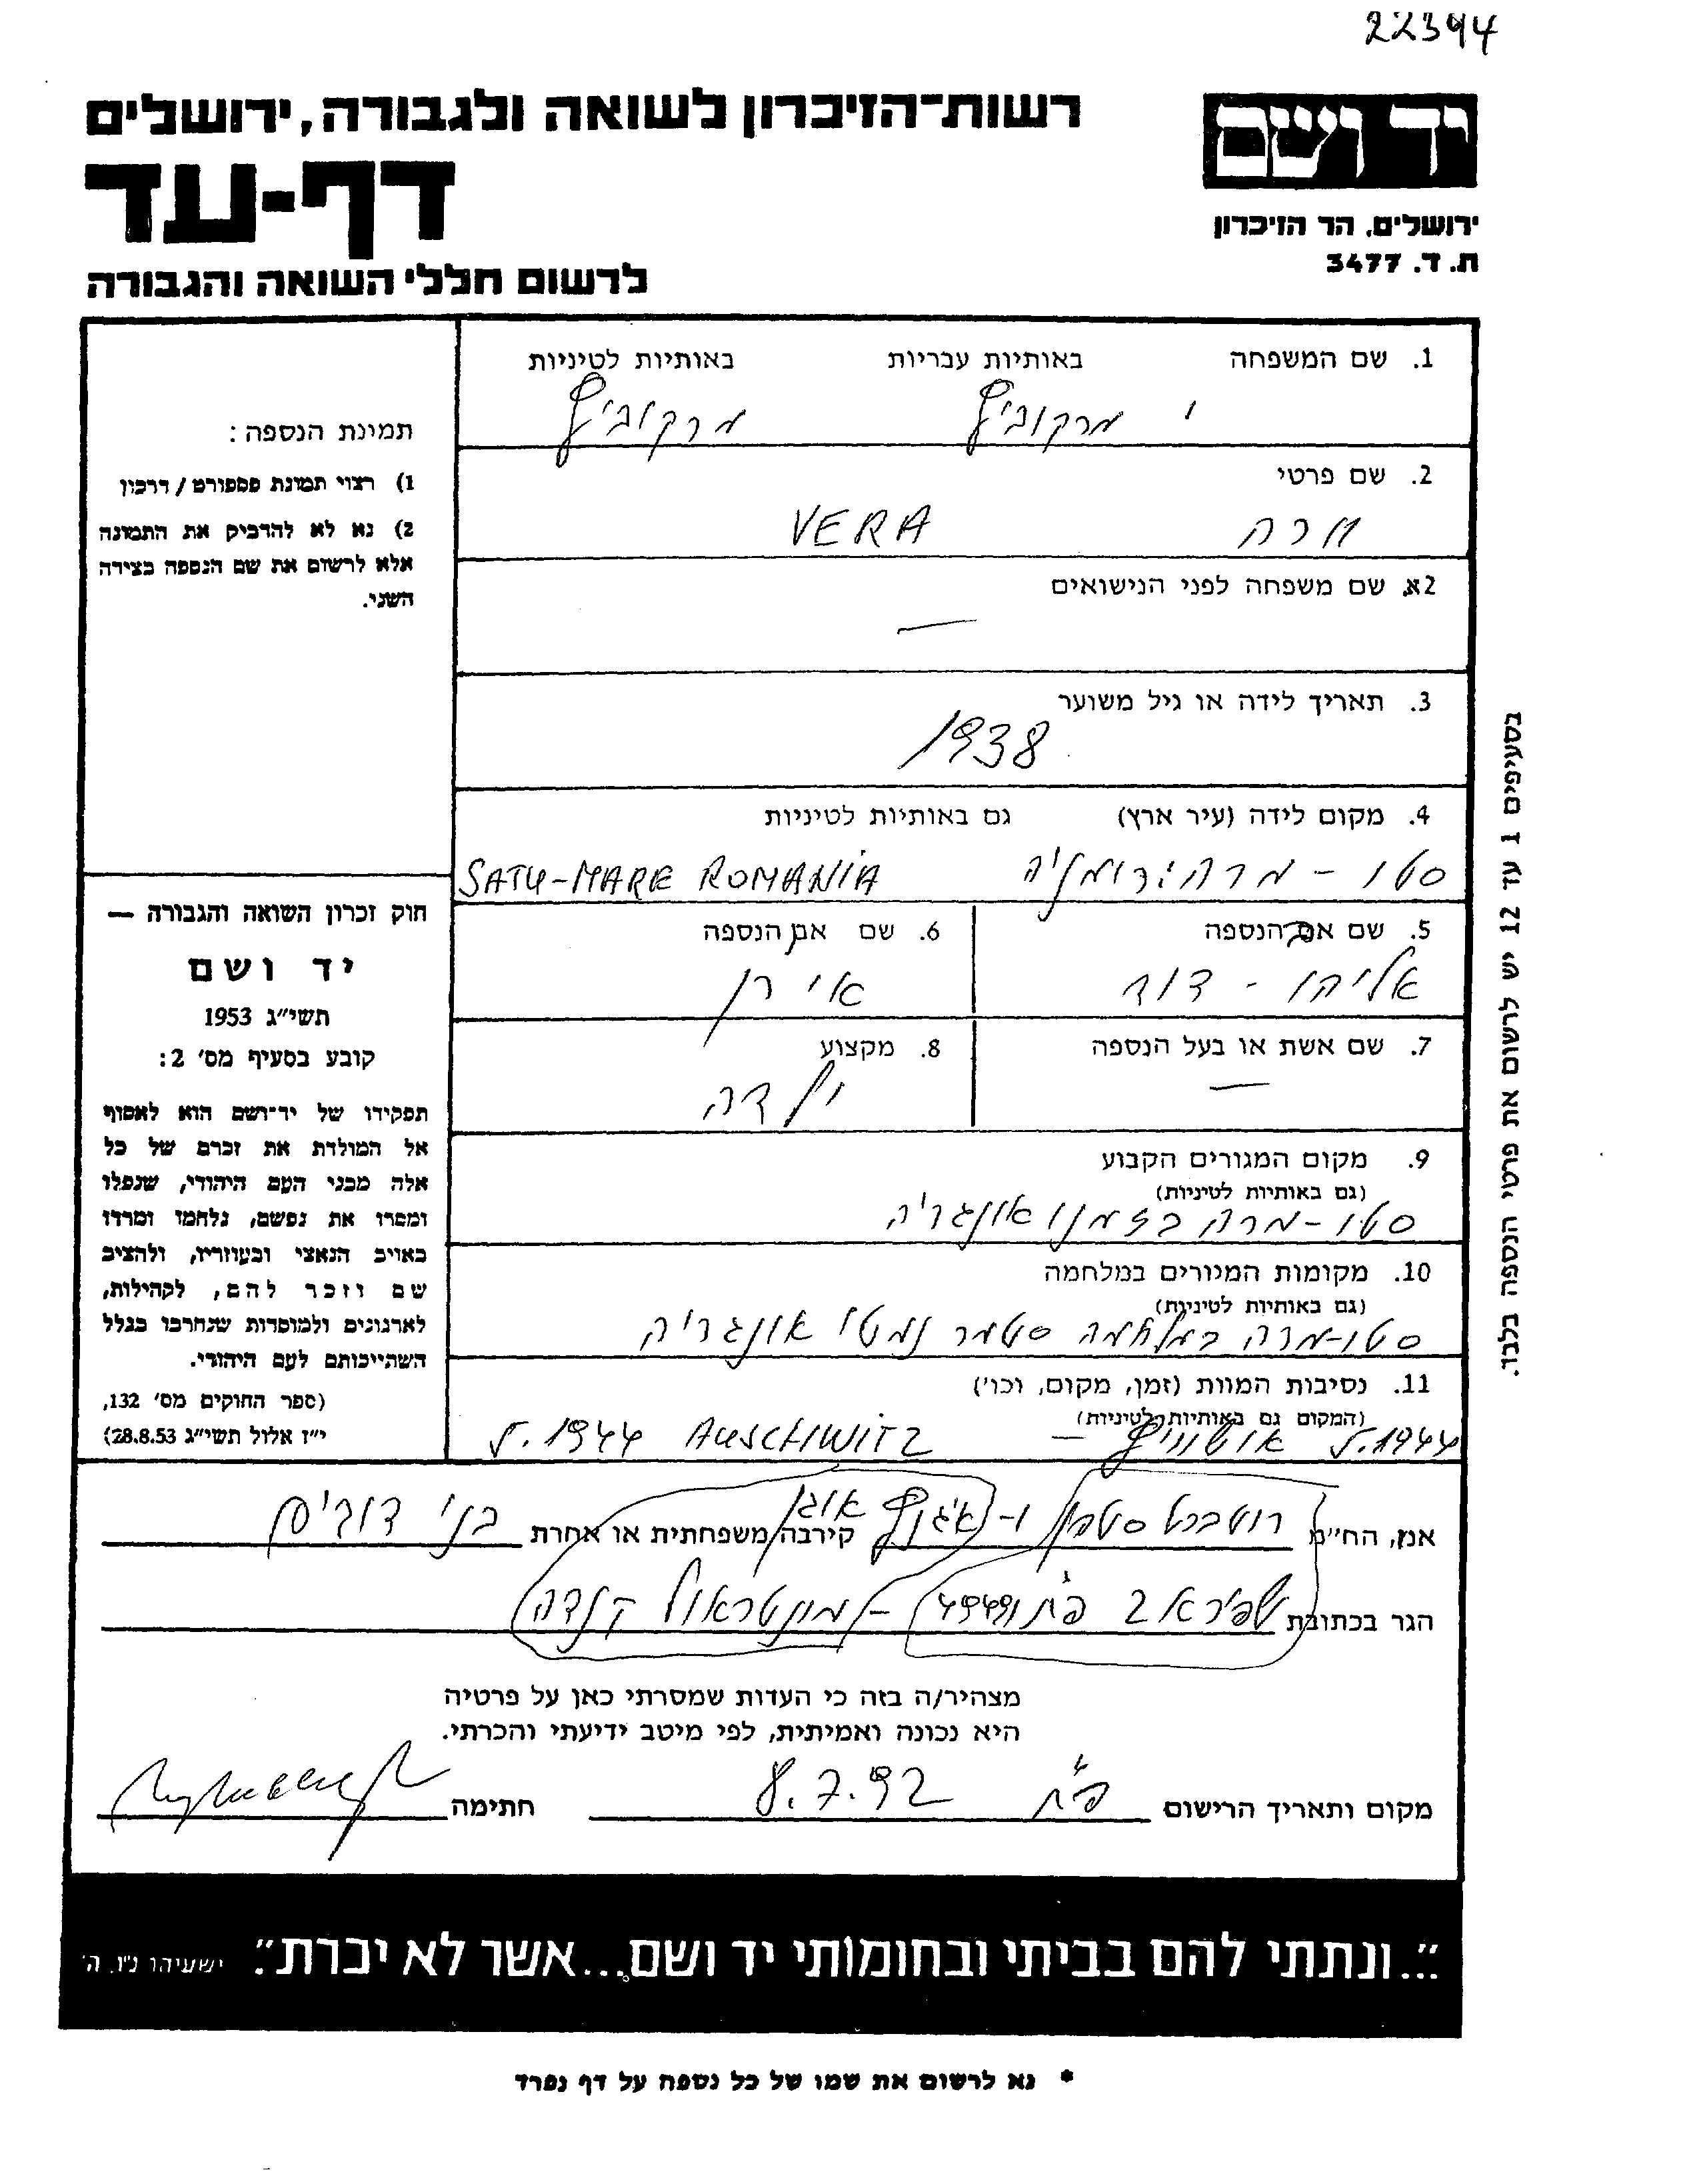 22394
יד ושם
ירושלים, הר הזיכרון
ת. ד. 3477
רשות־הזיכרון לשואה ולגבורה, ירושלים
דף-עד
לרשום חללי השואה והגבורה
1. שם המשפחה באותיות עבריות באותיות לטיניות
מרקוביץ מרקוביץ
2. שם פרטי
ורה VERA
2א. שם משפחה לפני הנישואים
—
3. תאריך לידה או גיל משוער
1938
4. מקום לידה (עיר ארץ) גם באותיות לטיניות
סטו - מרה רומניה SATU-MARE ROMANIA
5. שם אב הנספה
אליהו - דוד
6. שם אם הנספה
אירן
7. שם אשת או בעל הנספה
—
8. מקצוע
ילדה
9. מקום המגורים הקבוע
(גם באותיות לטיניות)
סטו-מרה בזמנו אונגריה
10. מקומות המגורים במלחמה
(גם באותיות לטיניות)
סטו-מרה במלחמה סטמר נמטי אונגריה
11. נסיבות המוות (זמן, מקום, וכו')
(המקום גם באותיות לטיניות)
5.1944 אושוויץ — AUSCHWITZ 5.1944
תמונת הנספה:
1) רצוי תמונת פספורט / דרכון
2) נא לא להדביק את התמונה
אלא לרשום את שם הנספה בצידה
השני.
חוק זכרון השואה והגבורה —
יד ושם
תשי"ג 1953
קובע בסעיף מס' 2:
תפקידו של יד־ושם הוא לאסוף
אל המולדת את זכרם של כל
אלה מבני העם היהודי, שנפלו
ומסרו את נפשם, נלחמו ומרדו
באויב הנאצי ובעוזריו, ולהציב
שם וזכר להם, לקהילות,
לארגונים ולמוסדות שנחרבו בגלל
השתייכותם לעם היהודי.
(ספר החוקים מס' 132,
י"ז אלול תשי"ג 28.8.53)
בסעיפים 1 עד 12 יש לרשום את פרטי הנספה בלבד.
אני, הח"מ סטפן ו- אוגן קירבה משפחתית או אחרת בני דודים
הגר בכתובת שפירא 2 פ"ת 49491 - מונטראול קנדה
מצהיר/ה בזה כי העדות שמסרתי כאן על פרטיה
היא נכונה ואמיתית, לפי מיטב ידיעתי והכרתי.
מקום ותאריך הרישום פ"ת 8.7.92 חתימה
"...ונתתי להם בביתי ובחומותי יד ושם...אשר לא יכרת". ישעיהו נ"ו, ה'
* נא לרשום את שמו של כל נספה על דף נפרד